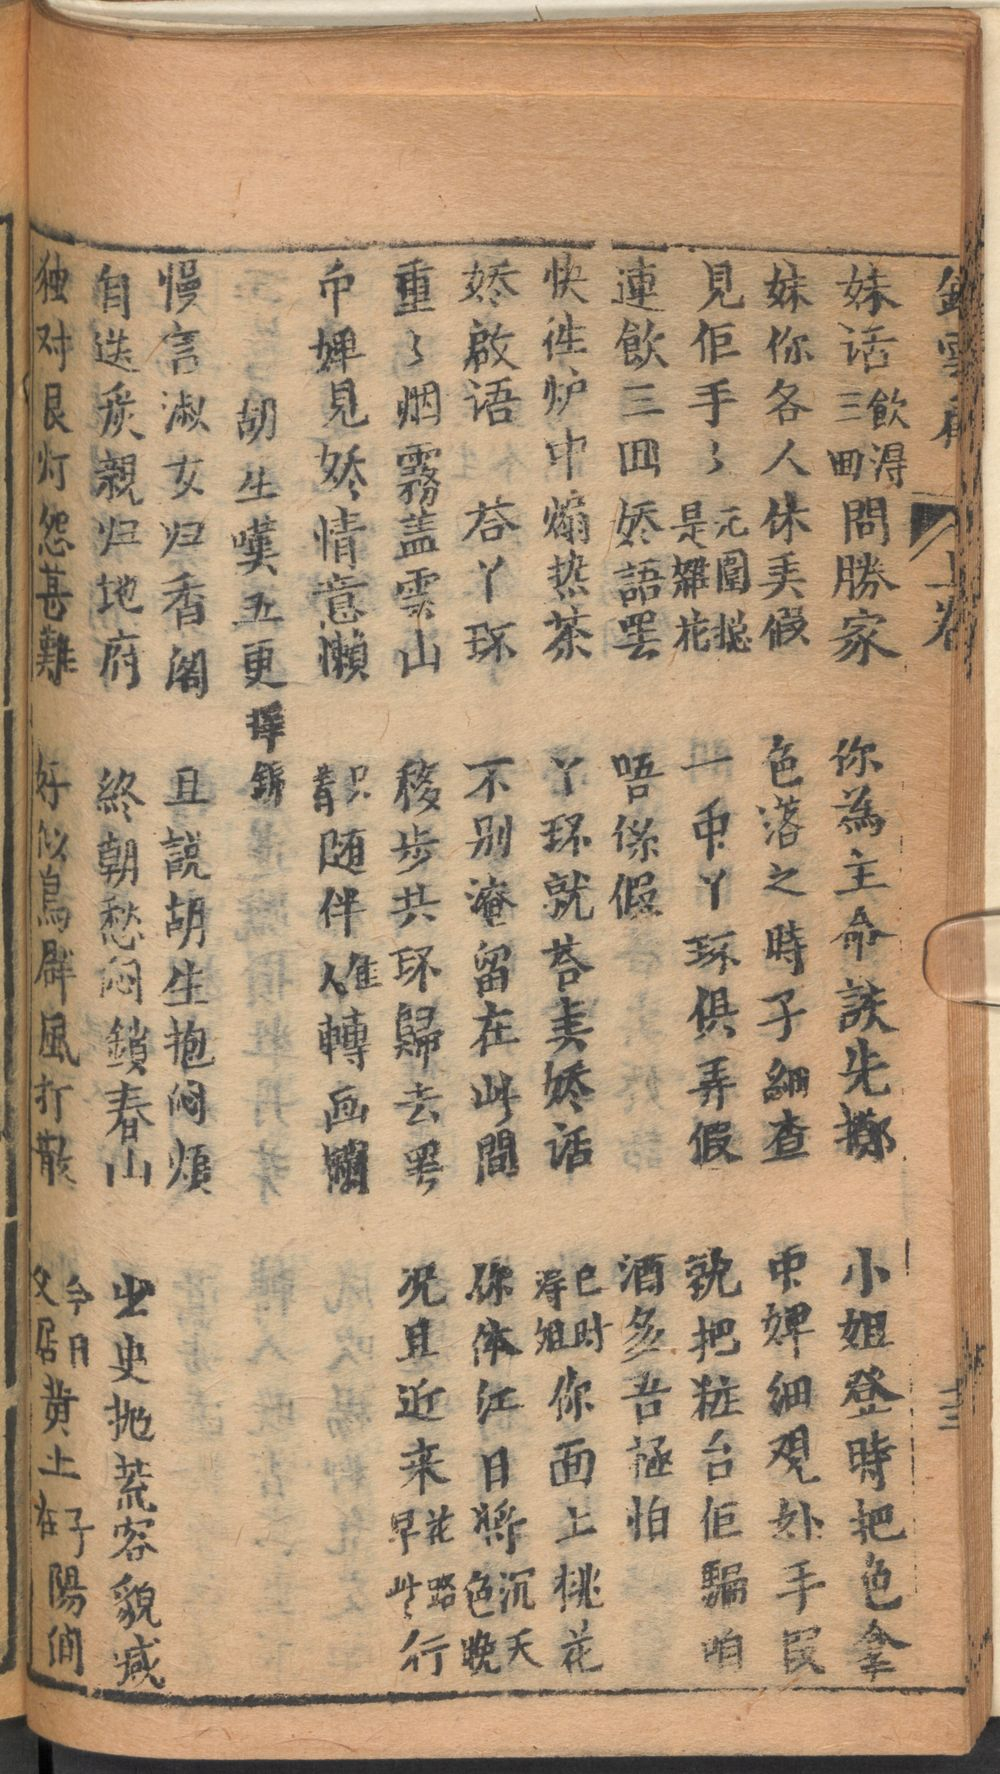 上卷
妹話飲得三回問勝家 你為主命該先擲 小姐登時把色拿
妹你各人休美假 色落之時子細查 婢細观处手
見佢手〻元圍搃是雜花 一丫环俱弄假 執把粧台佢騙咱
連飲三回娇語罢 唔係假 酒多吾極怕
快徃炉中煽热茶 丫环就荅美娇话 巳时得姐你面上桃花
娇啟语 荅丫环 不别淹留在此間 你体江日将沉色天晚
重〻烟霧盖雲山 移步共环歸去罢 况且近来花路早些行
婢見娇情意懒 只着随伴佳人轉画
胡生嘆五更
慢言淑女归香阁 且説胡生抱闷煩
自送亲親归地府 終朝愁闷鎖春山 出史抛荒容貌减
独对艮灯怨甚難 好似鳥群風打散 今日文君黄土在子陽间
三